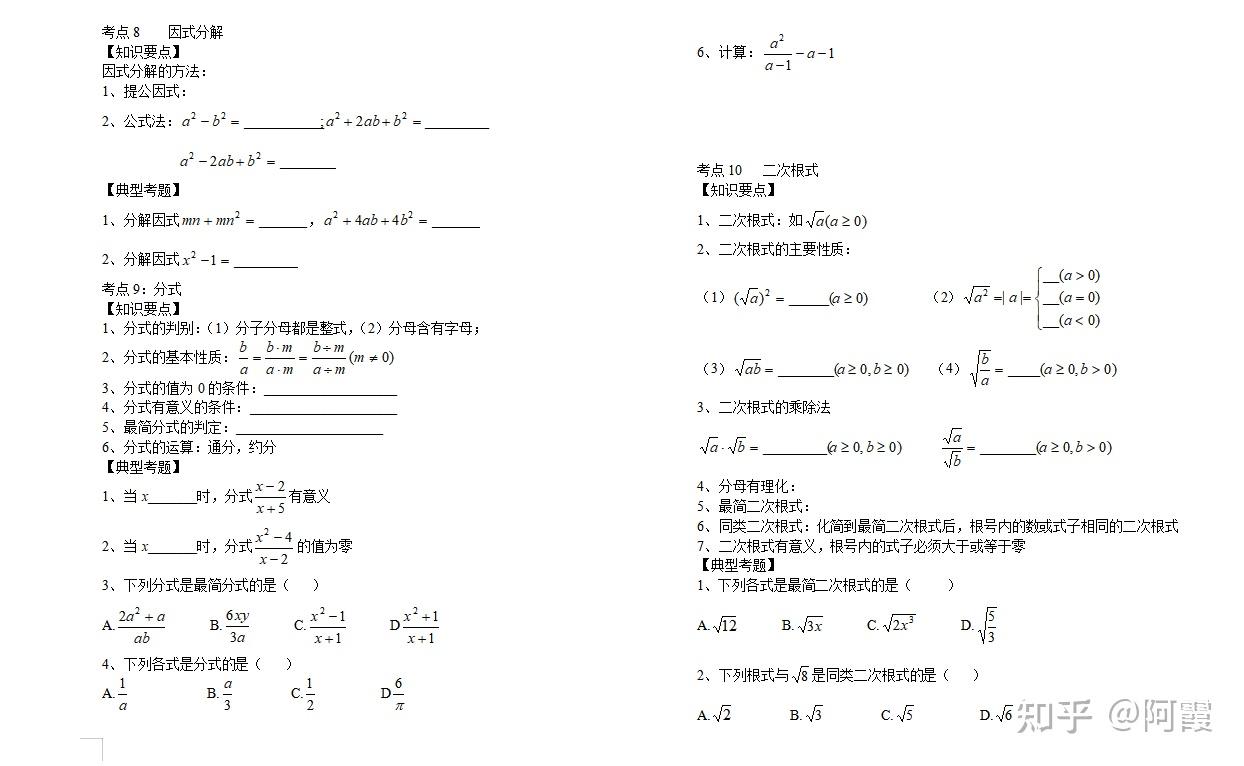 考点 8　因式分解
【知识要点】
因式分解的方法：
1、提公因式：
2、公式法：a² − b² = __________; a² + 2ab + b² = ________
a² − 2ab + b² = _______
【典型考题】
1、分解因式 mn + mn² = ______，a² + 4ab + 4b² = ______
2、分解因式 x² − 1 = ________
考点 9：分式
【知识要点】
1、分式的判别：（1）分子分母都是整式，（2）分母含有字母；
2、分式的基本性质：b/a = (b·m)/(a·m) = (b÷m)/(a÷m) (m ≠ 0)
3、分式的值为 0 的条件：___________________
4、分式有意义的条件：_____________________
5、最简分式的判定：_____________________
6、分式的运算：通分，约分
【典型考题】
1、当 x_______时，分式 (x−2)/(x+5) 有意义
2、当 x_______时，分式 (x²−4)/(x−2) 的值为零
3、下列分式是最简分式的是（　）
A. (2a²+a)/ab　B. 6xy/3a　C. (x²−1)/(x+1)　D (x²+1)/(x+1)
4、下列各式是分式的是（　）
A. 1/a　B. a/3　C. 1/2　D 6/π
6、计算：a²/(a−1) − a − 1
考点 10　二次根式
【知识要点】
1、二次根式：如 √a (a ≥ 0)
2、二次根式的主要性质：
（1）(√a)² = _____(a ≥ 0)　（2）√(a²) = |a| = { __(a > 0)
__(a = 0)
__(a < 0)
（3）√(ab) = _______(a ≥ 0, b ≥ 0)　（4）√(b/a) = ____(a ≥ 0, b > 0)
3、二次根式的乘除法
√a · √b = ________(a ≥ 0, b ≥ 0)　√a/√b = _______(a ≥ 0, b > 0)
4、分母有理化：
5、最简二次根式：
6、同类二次根式：化简到最简二次根式后，根号内的数或式子相同的二次根式
7、二次根式有意义，根号内的式子必须大于或等于零
【典型考题】
1、下列各式是最简二次根式的是（　）
A. √12　B. √(3x)　C. √(2x³)　D. √(5/3)
2、下列根式与 √8 是同类二次根式的是（　）
A. √2　B. √3　C. √5　D. √6
知乎 @阿霞